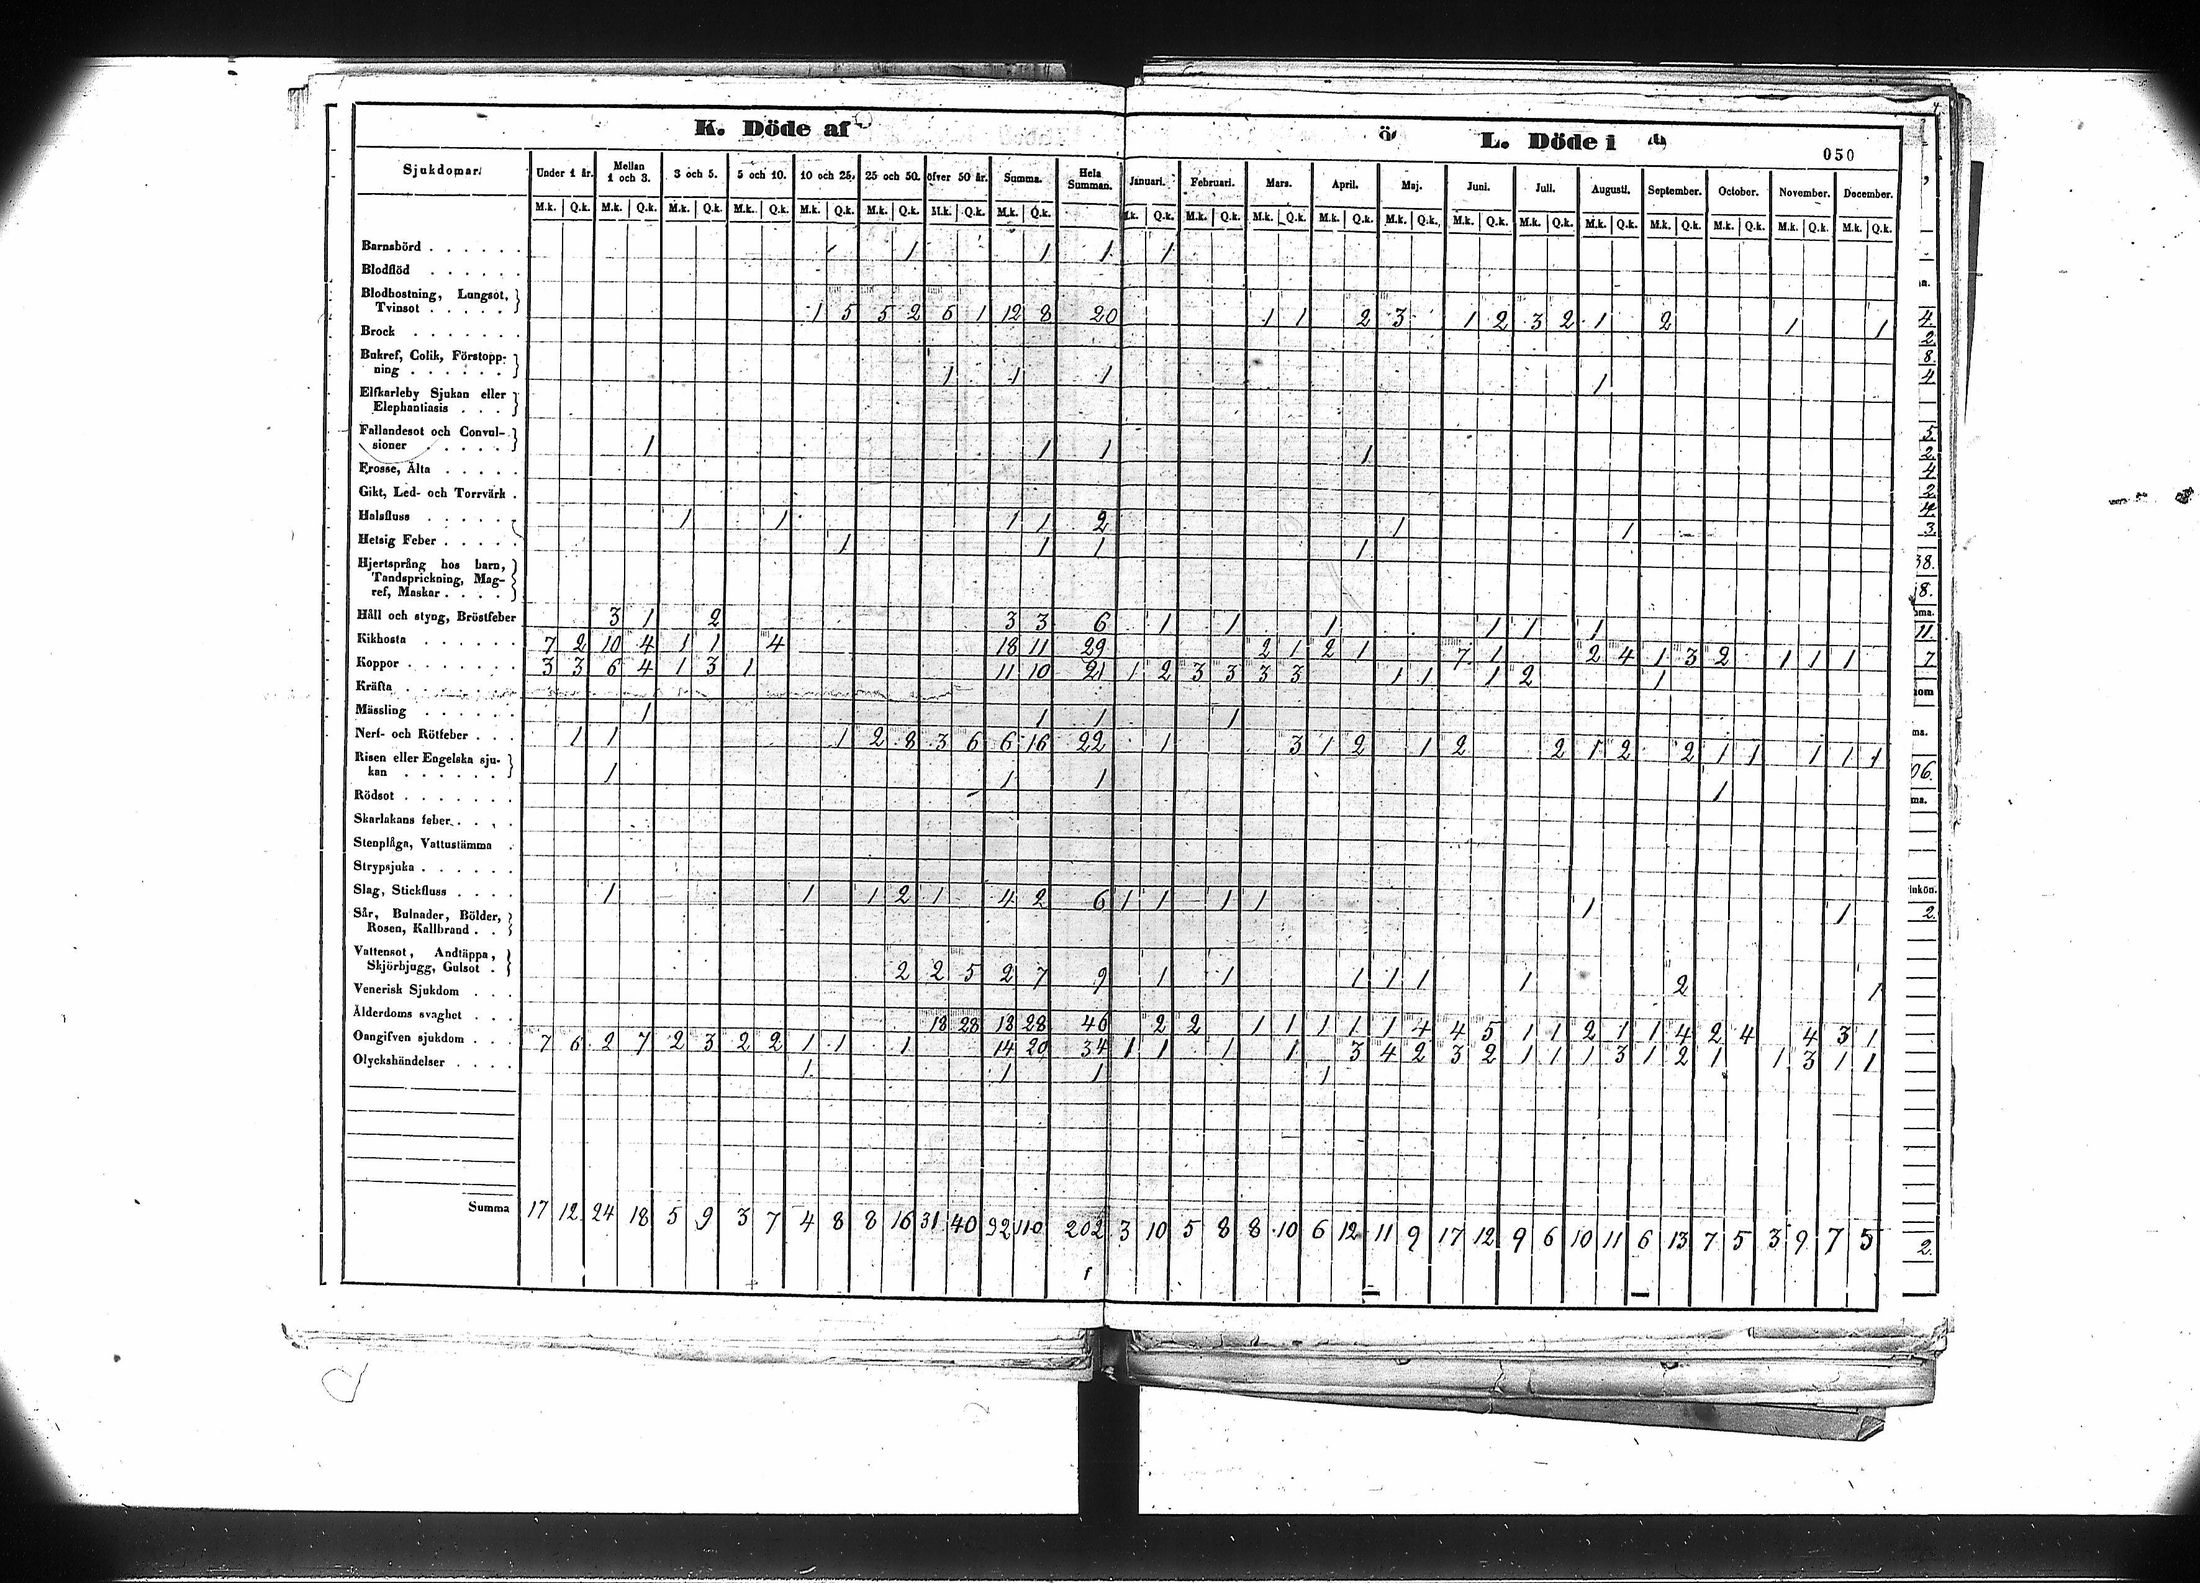 K. Döde af
L. Döde i
050
Sjukdomar. Under 1 år. Mellan 1 och 3. 3 och 5. 5 och 10. 10 och 25. 25 och 50. öfver 50 år. Summa. Hela Summan. Januari. Februari. Mars. April. Maj. Juni. Juli. Augusti. September. October. November. December.
M.k. Q.k. M.k. Q.k. M.k. Q.k. M.k. Q.k. M.k. Q.k. M.k. Q.k. M.k. Q.k. M.k. Q.k. M.k. Q.k. M.k. Q.k. M.k. Q.k. M.k. Q.k. M.k. Q.k. M.k. Q.k. M.k. Q.k. M.k. Q.k. M.k. Q.k. M.k. Q.k. M.k. Q.k. M.k. Q.k.
Barnsbörd 1 1 1 1
Blodflöd
Blodhostning, Lungsot,
Tvinsot 1 5 5 2 6 1 12 8 20 1 1 2 3 1 2 3 2 1 2 1 1
Brock
Bukref, Colik, Förstopp-
ning 1 1 1 1
Elfkarleby Sjukan eller
Elephantiasis
Fallandesot och Convul-
sioner 1 1 1 1
Frosse, Älta
Gikt, Led- och Torrvärk
Halsfluss 1 1 1 1 2 1 1
Hetsig Feber 1 1 1 1
Hjertsprång hos barn,
Tandsprickning, Mag-
ref, Maskar
Håll och styng, Bröstfeber 3 1 2 3 3 6 1 1 1 1 1 1
Kikhosta 7 2 10 4 1 1 4 18 11 29 2 1 2 1 7 1 2 4 1 3 2 1 1 1
Koppor 3 3 6 4 1 3 1 11 10 21 1 2 3 3 3 3 1 1 1 2 1
Kräfta
Mässling 1 1 1 1
Nerf- och Rötfeber 1 1 1 2 8 3 6 6 16 22 1 3 1 2 1 2 2 1 2 2 1 1 1 1 1
Risen eller Engelska sju-
kan 1 1 1 1
Rödsot
Skarlakans feber
Stenplåga, Vattustämma
Strypsjuka
Slag, Stickfluss 1 1 1 2 1 4 2 6 1 1 1 1 1 1
Sår, Bulnader, Bölder,
Rosen, Kallbrand
Vattensot, Andtäppa,
Skjörbjugg, Gulsot 2 2 5 2 7 9 1 1 1 1 1 1 2 1
Venerisk Sjukdom
Ålderdoms svaghet 18 28 18 28 46 2 2 1 1 1 1 1 4 4 5 1 1 2 1 1 4 2 4 4 3 1
Oangifven sjukdom 7 6 2 7 2 3 2 2 1 1 1 14 20 34 1 1 1 1 3 4 2 3 2 1 1 1 3 1 2 1 1 3 1 1
Olyckshändelser 1 1 1 1
Summa 17 12 24 18 5 9 3 7 4 8 8 16 31 40 92 110 202 3 10 5 8 8 10 6 12 11 9 17 12 9 6 10 11 6 13 7 5 3 9 7 5